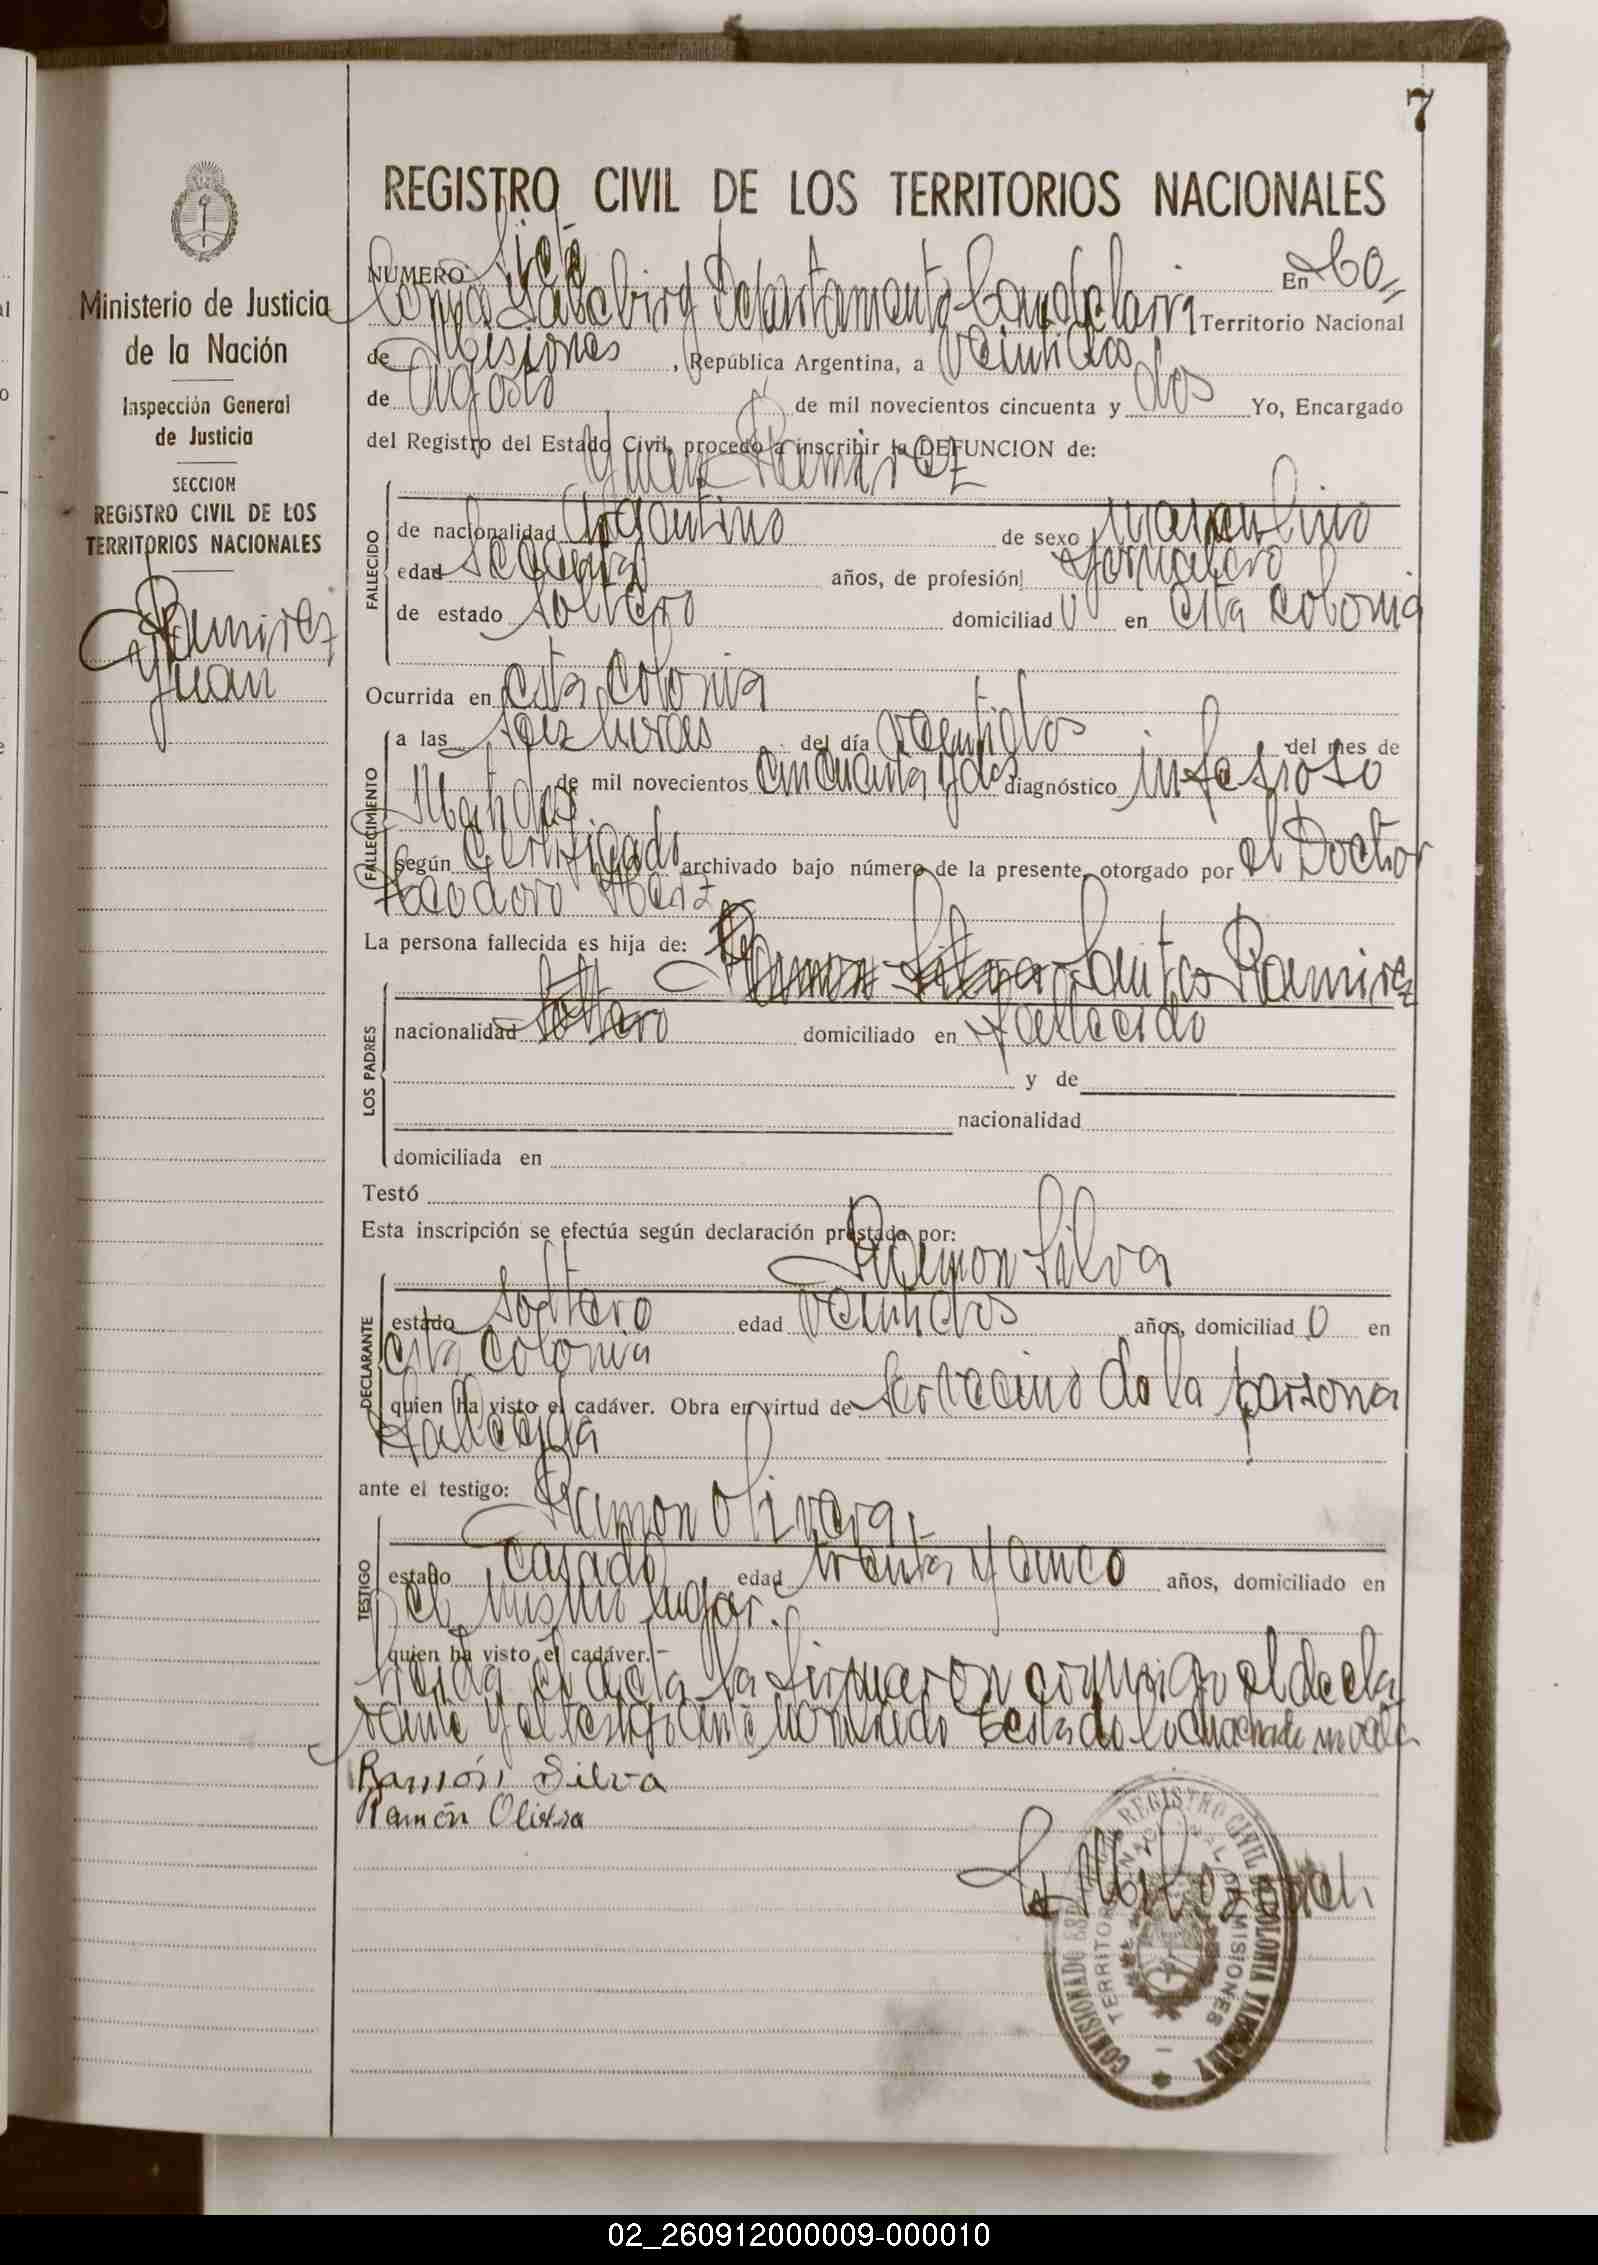 7
REGISTRO CIVIL DE LOS TERRITORIOS NACIONALES
Ministerio de Justicia
de la Nación
Inspección General
de Justicia
SECCION
REGISTRO CIVIL DE LOS
TERRITORIOS NACIONALES
Ramirez
Juan
NUMERO Siete En
Departamento Candelaria Territorio Nacional
de Misiones, República Argentina, a veintidos
de Agosto de mil novecientos cincuenta y dos Yo, Encargado
del Registro del Estado Civil, procedo a inscribir la DEFUNCION de:
Juan Ramirez
FALLECIDO
de nacionalidad Argentino de sexo masculino
edad años, de profesión Jornalero
de estado soltero domiciliado en esta colonia
Ocurrida en esta colonia
FALLECIMIENTO
a las horas del día veintidos del mes de
de mil novecientos cincuenta y dos diagnóstico
según Certificado archivado bajo número de la presente, otorgado por el Doctor
Teodoro
La persona fallecida es hija de: Ramon Silva Santos Ramirez
LOS PADRES
nacionalidad soltero domiciliado en fallecido
y de
nacionalidad
domiciliada en
Testó
Esta inscripción se efectúa según declaración prestada por:
Ramon Silva
DECLARANTE
estado soltero edad veintidos años, domiciliado en
esta colonia
quien ha visto el cadáver. Obra en virtud de ser vecino de la persona
fallecida
ante el testigo: Ramon Olivera
TESTIGO
estado casado edad treinta y cinco años, domiciliado en
el mismo lugar.
quien ha visto el cadáver.-
Leida el acta la firmaron conmigo el decla
rante y el testigo ante nombrado Testado lo no vale
Ramón Silva
Ramón Olivera
REGISTRO CIVIL COLONIA
TERRITORIO NACIONAL DE MISIONES
02_260912000009-000010